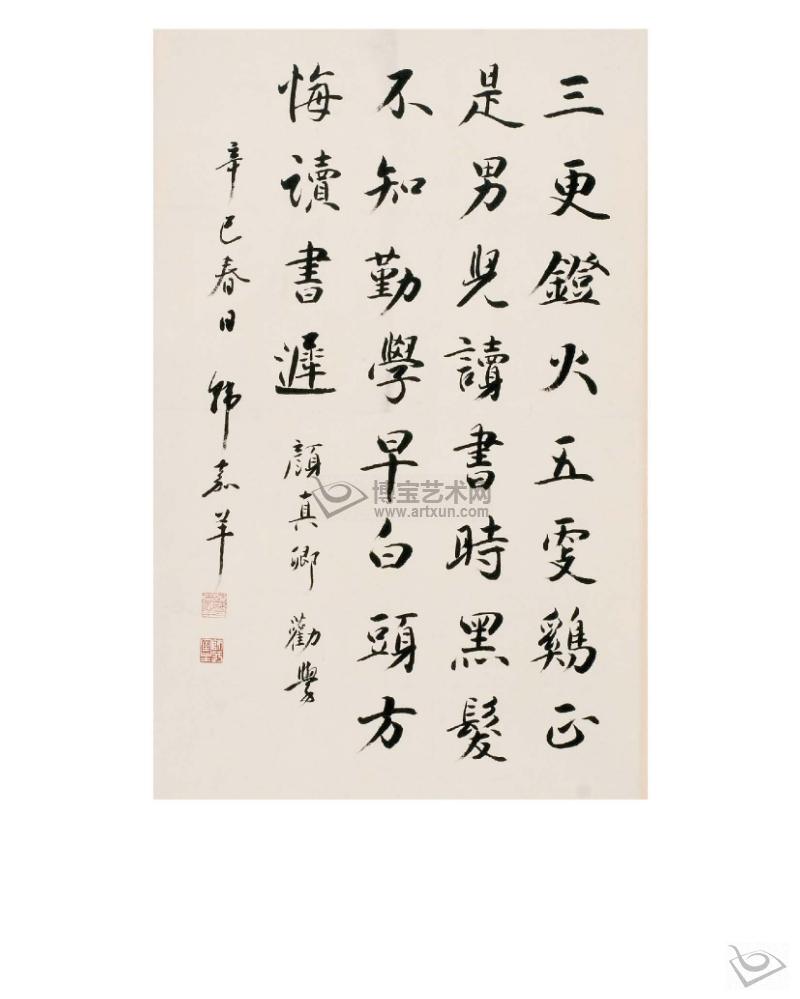 三更鐙火五更鷄正
是男兒讀書時黑髮
不知勤學早白頭方
悔讀書遲 顏真卿 勸學
辛巳春日 韩嘉羊
博宝艺术网
www.artxun.com